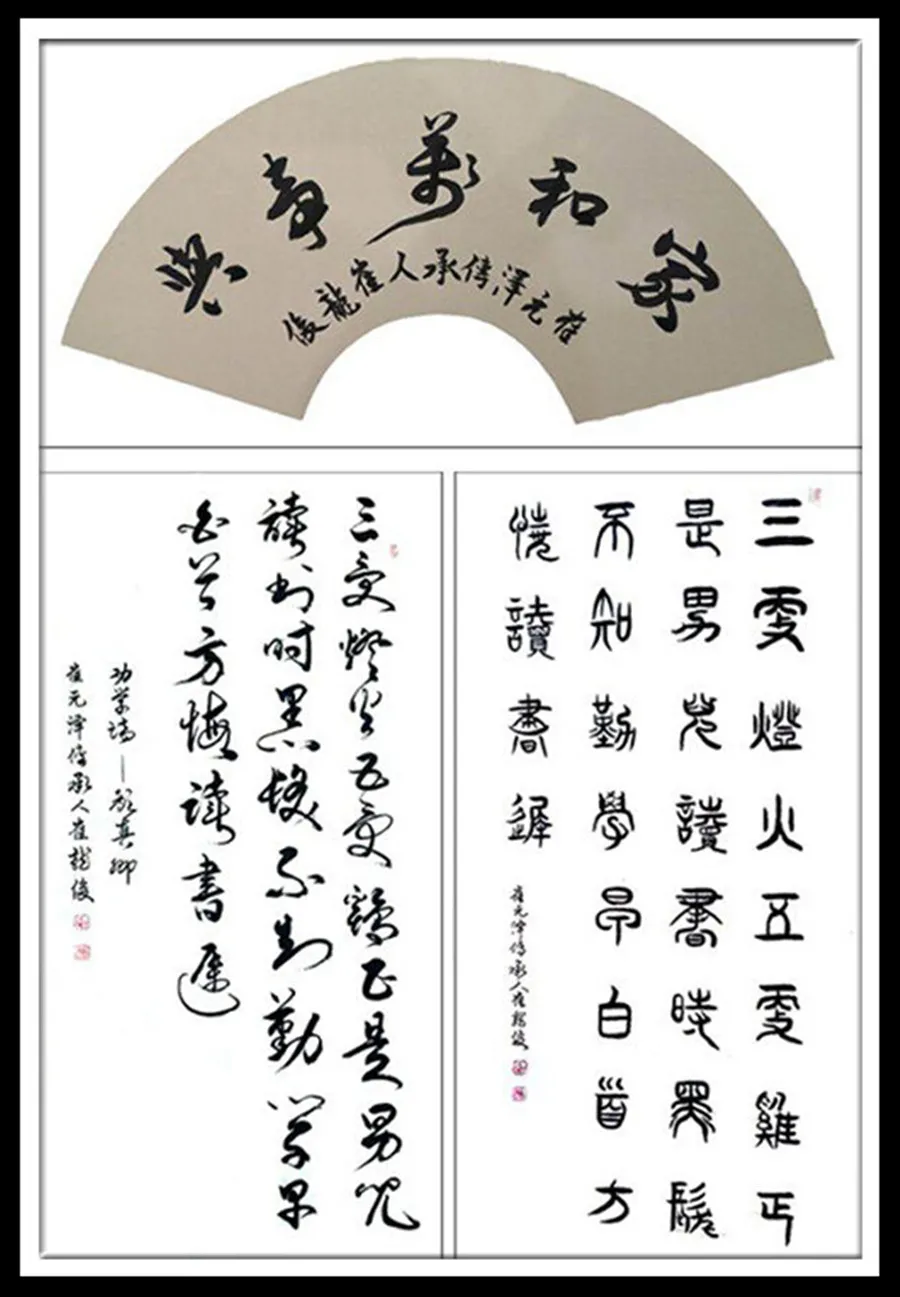 家和萬事興
崔元澤傳承人崔龍俊
三更燈火五更雞正
是男兒讀書時黑髮
不知勤學早白首方
悔讀書遲
崔元泽传承人崔龍俊
三更燈火五更鷄正是男児
讀书时黑髮不知勤学早
白首方悔读書遲
劝学诗—颜真卿
崔元泽传承人崔龍俊